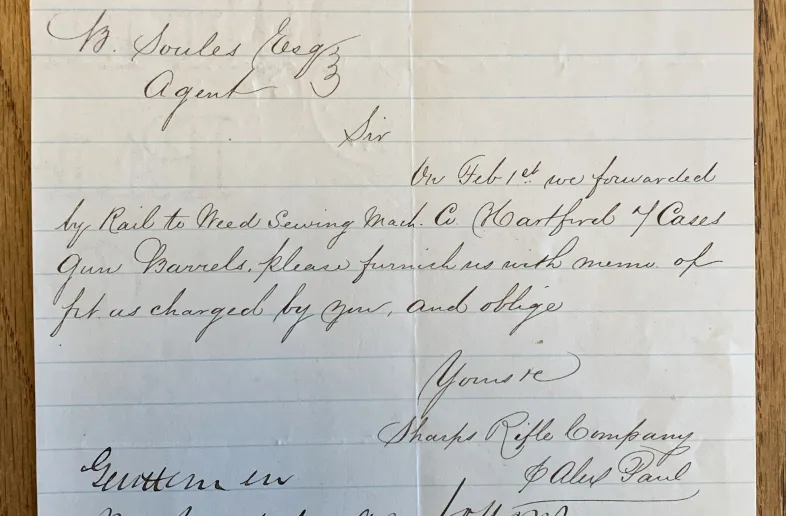 B. Soules Esq
Agent
Sir
On Feb 1st we forwarded
by Rail to Weed Sewing Mach. Co. Hartford 7 Cases
Gun Barrels, please furnish us with memo. of
frt. as charged by you, and oblige
Yours &c
Sharps Rifle Company
Alex Paul
Gentlemen